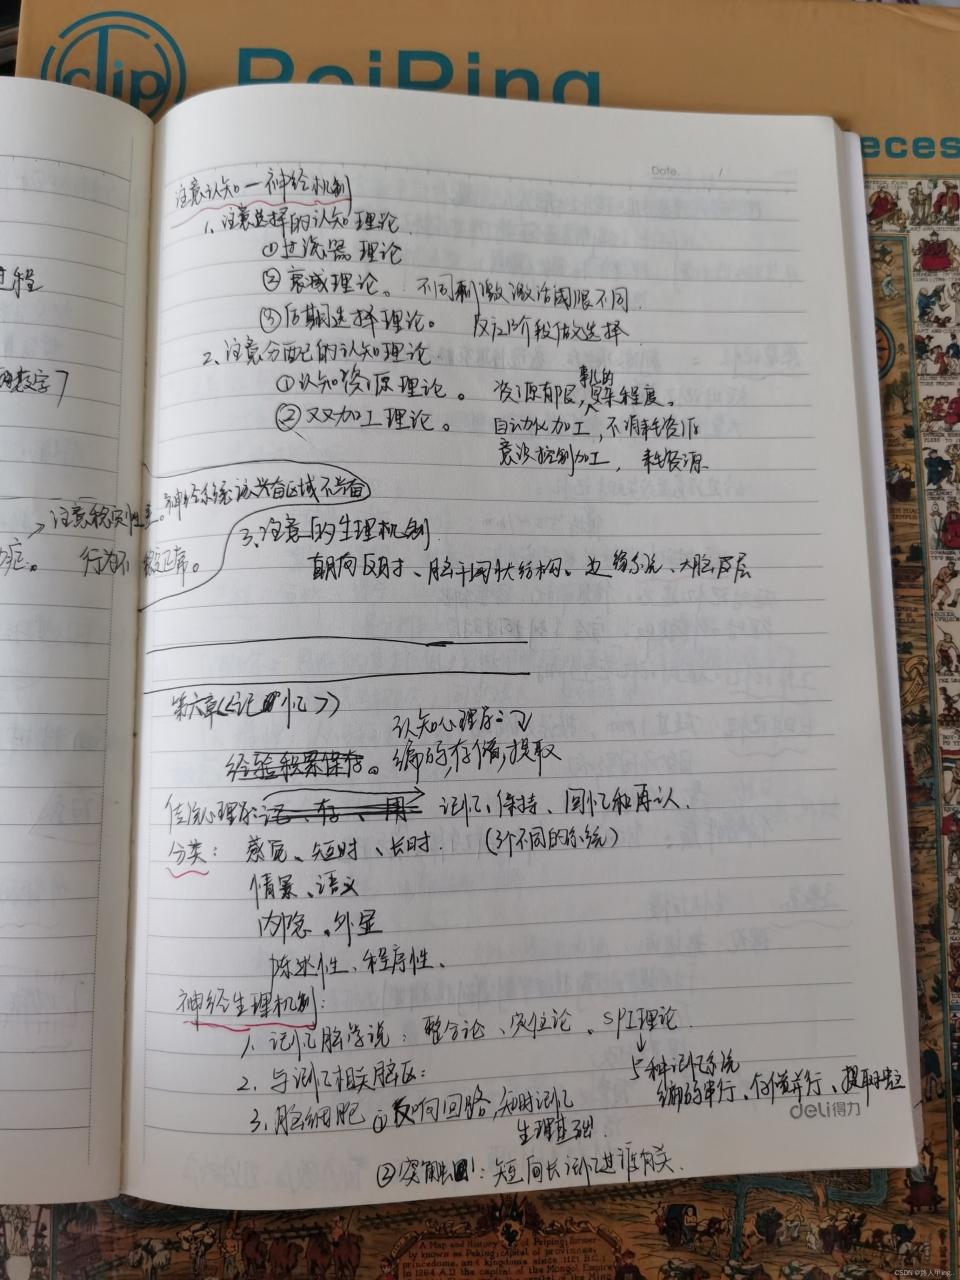 clip
PeiPing
eces
Date. /
注意认知—神经机制
1、注意选择的认知理论
①过滤器理论
②衰减理论。 不同刺激激活阈限不同
③后期选择理论。 反应阶段做选择
2、注意分配的认知理论
①认知资源理论。 资源有限,
②双加工理论。 自动化加工,不消耗资源
意识控制加工, 耗资源
过程
数字7
神经系统:该兴奋区域不兴奋
注意稳定性差。
症。 行为不
3、注意的生理机制
朝向反射、脑干网状结构。边缘系统、大脑皮层
第六章《记忆》
认知心理学:
经验积累保存。编码,存储,提取
传统心理学: 记忆、保持、回忆和再认.
分类: 感觉、短时、长时. (3个不同的系统)
情景、语义
内隐、外显
陈述性、程序性、
神经生理机制:
1、记忆脑学说: 整合论、定位论、SPI理论.
5种记忆系统
2、与记忆相关脑区: 编码串行、存储并行、提取独立
3、脑细胞 ①反响回路 短时记忆
生理基础.
deli得力
②突触: 短向长记忆 有关.
A Map and History of Peiping; formerly
known as Peking; capital of provinces,
princedoms, and kingdoms since 1121 B.C.;
in 1264 A.D. the capital of the Mongol Empire
CSDN @路人甲ing..